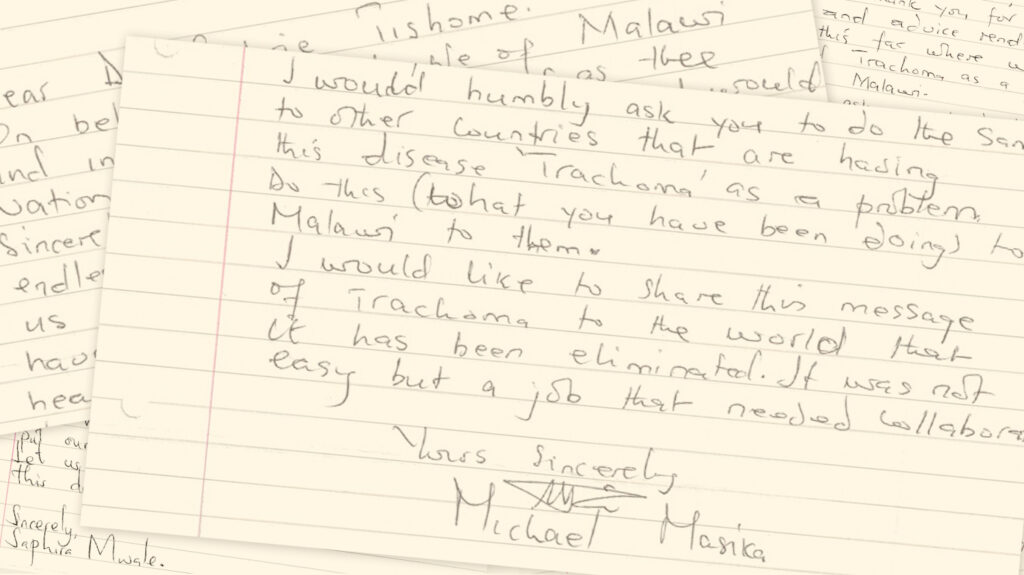 Tishome.
Malawi
of
as thee
would
ear
On bel
and in
vation
Sincere
endle
us
hav
hea
you for
and advice rend
this far where w
Trachoma as a
Malawi.
I would humbly ask you to do the sam
to other countries that are having
this disease 'Trachoma' as a problem.
Do this (what you have been doing) to
Malawi to them.
I would like to share this message
of Trachoma to the world that
it has been eliminated. It was not
easy but a job that needed collabora
Yours Sincerely
Michael Masika
put our
let us
this d
Sncerely,
Saphira Mwale.